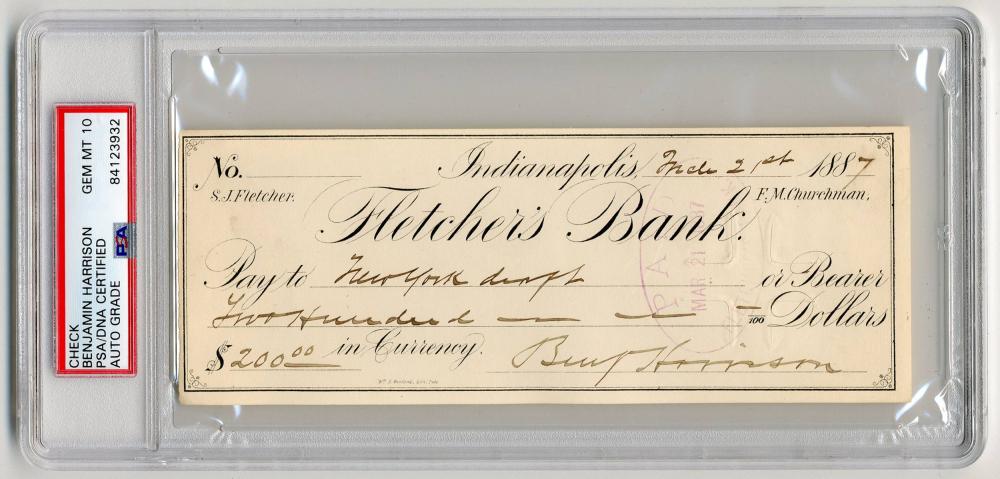 CHECK
BENJAMIN HARRISON
PSA/DNA CERTIFIED
AUTO GRADE
GEM MT 10
84123932
PSA
No. Indianapolis, Mch 21st 1887
S.J. Fletcher. F.M. Churchman.
Fletcher's Bank.
Pay to New York draft or Bearer
Two Hundred — — — /100 Dollars
$200.00 in Currency. Benj Harrison
PAID
MAR 21 87